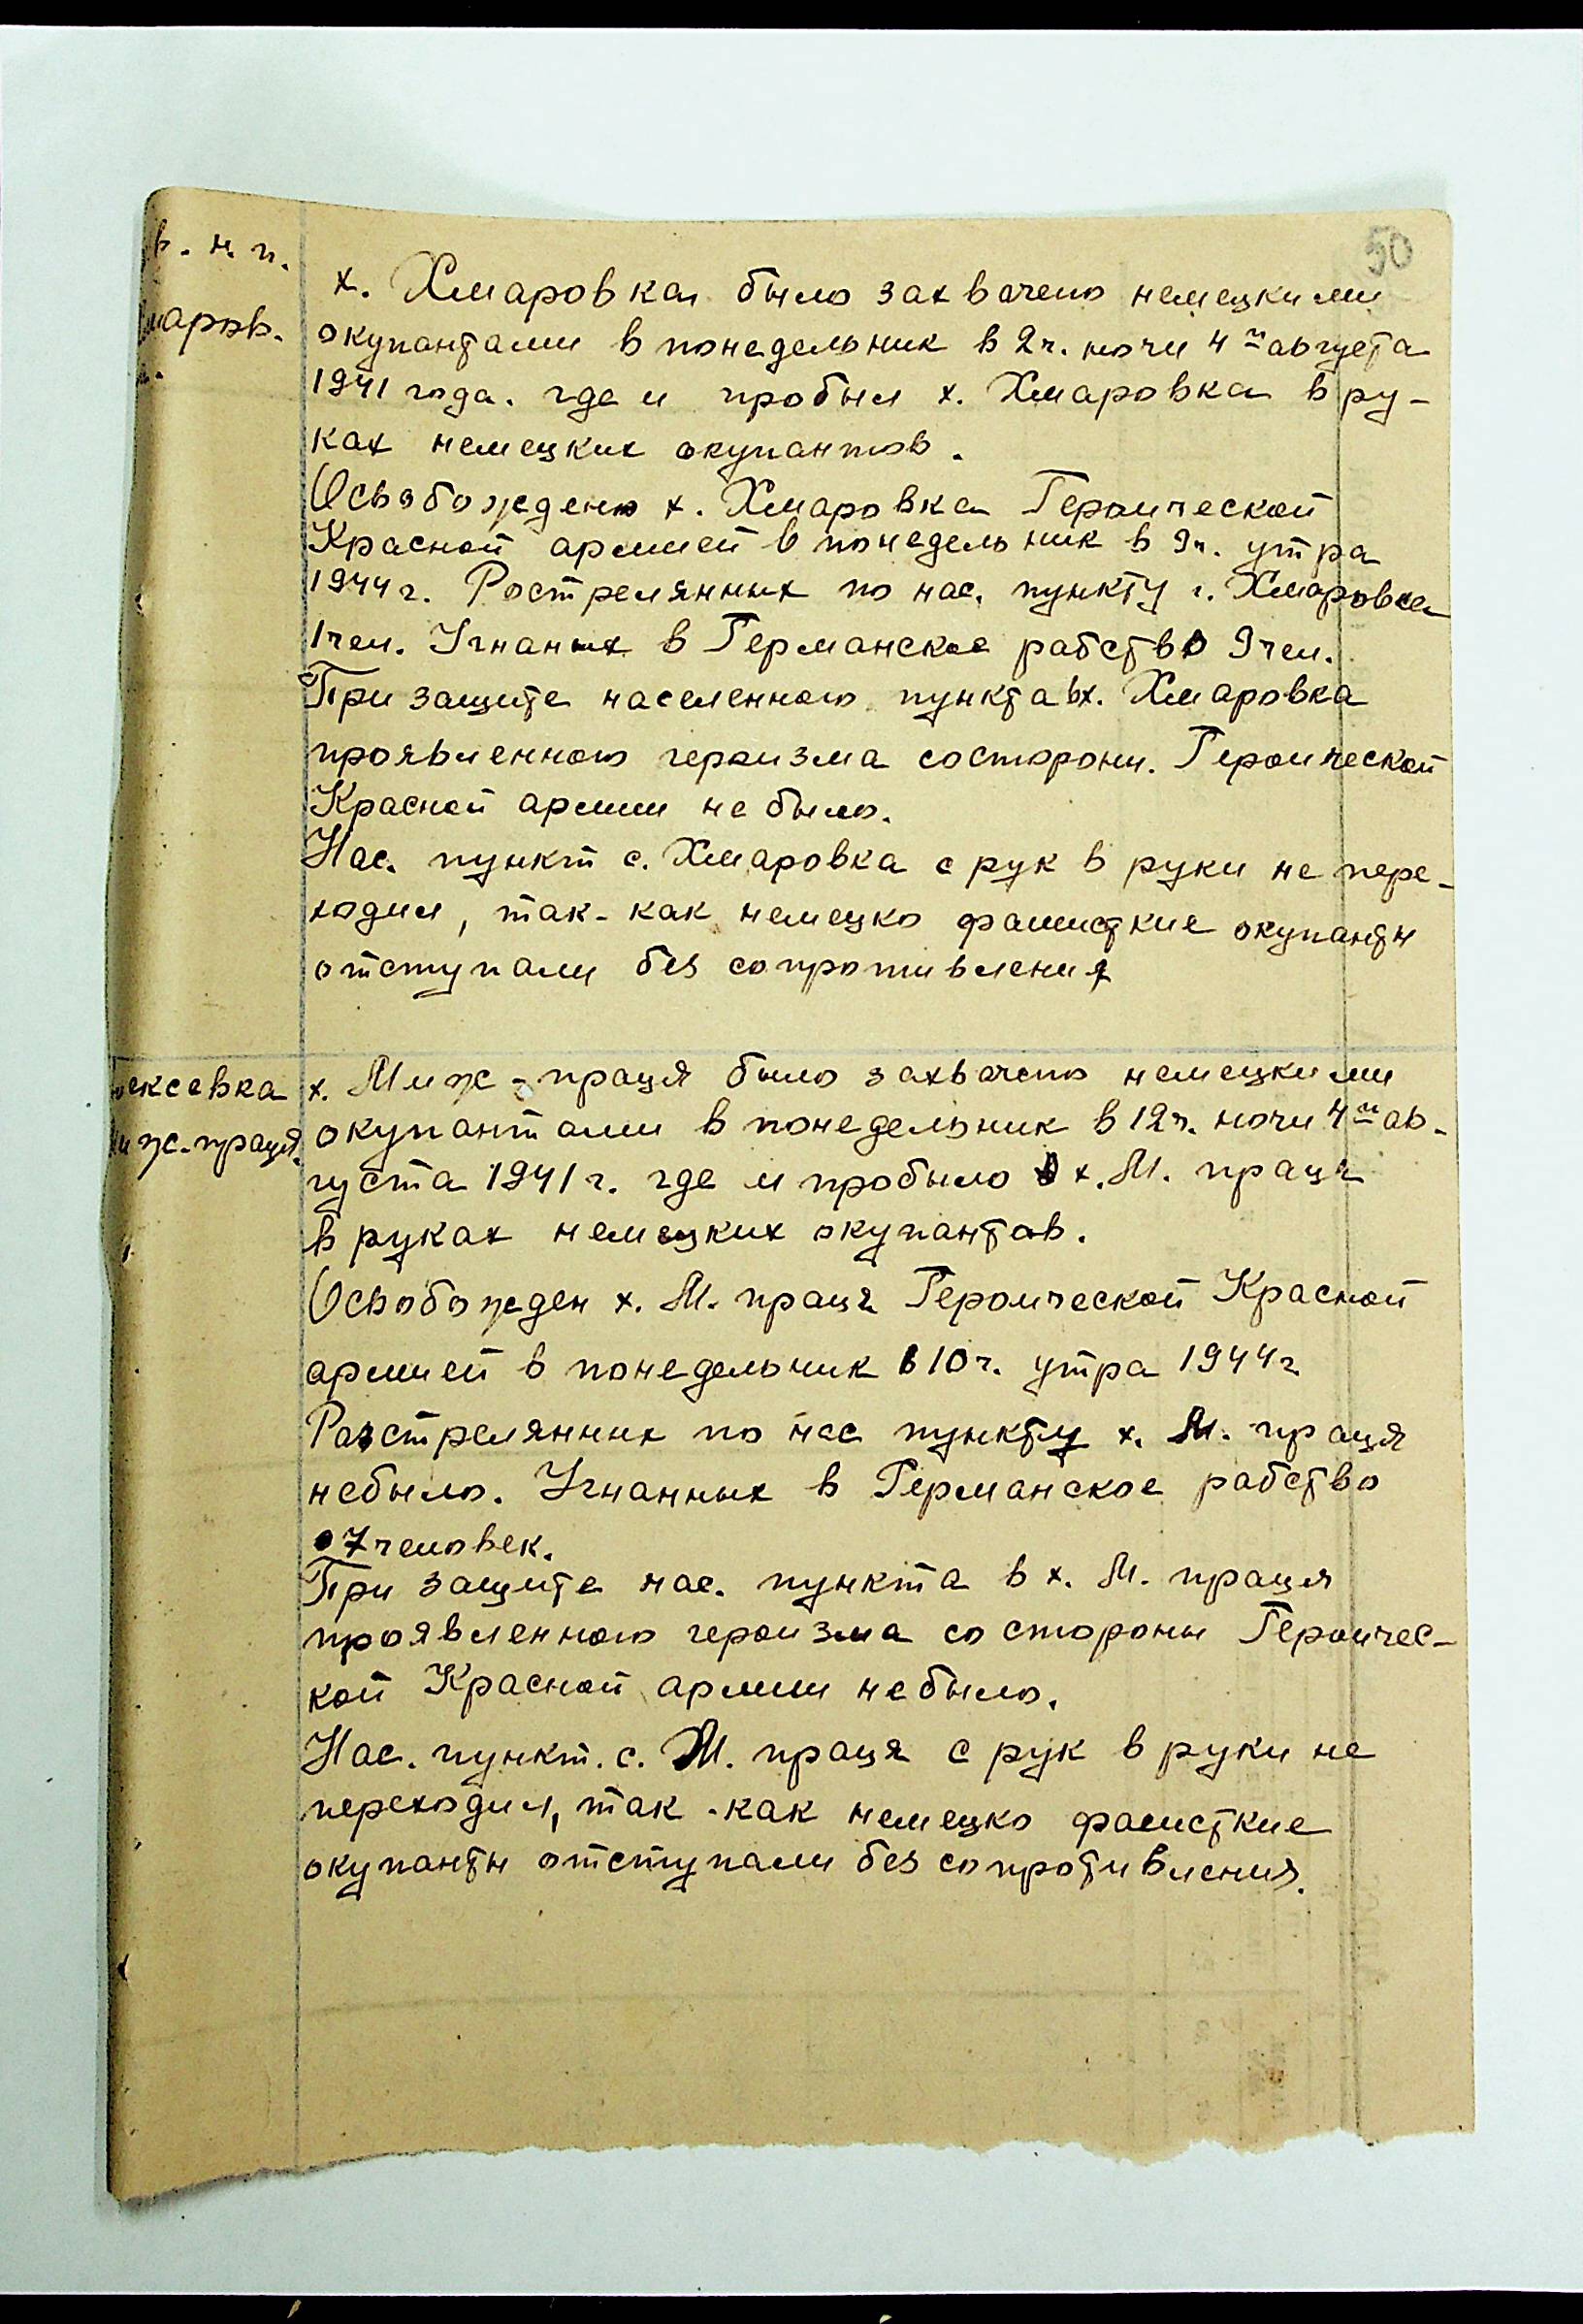 50
в. н. п.
маров.
х. Хмаровка было захвачено немецкими
окупантами в понедельник в 2ч. ночи 4го августа
1941 года. где и пробыл х. Хмаровка в ру-
ках немецких окупантов.
Освобождено х. Хмаровка Героической
Красной армией в понедельник в 9ч. утра
1944 г. Рострелянных по нас. пункту г. Хмаровка
1чел. Угнаных в Германское рабство 9чел.
При защите населенного пункта вх. Хмаровка
проявленного героизма состороны. Героической
Красной армии не было.
Нас. пункт с. Хмаровка с рук в руки не пере-
ходил, так-как немецко фашисткие окупанты
отступали без сопротивления
ексевка
иж-праця.
х. Миж-праця было захвачено немецкими
окупантами в понедельник в 12ч. ночи 4го ав-
густа 1941 г. где и пробыло х. М. праця
в руках немецких окупантов.
Освобожден х. М. праця Героической Красной
армией в понедельник в 10ч. утра 1944г
Разстрелянных по нас пункту х. М. праця
небыло. Угнанных в Германское рабство
7человек.
При защите нас. пункта в х. М. праця
проявленного героизма со стороны Героичес-
кой Красной армии небыло.
Нас. пункт. с. М. праця с рук в руки не
переходил, так-как немецко фашисткие
окупанты отступали без сопротивления.